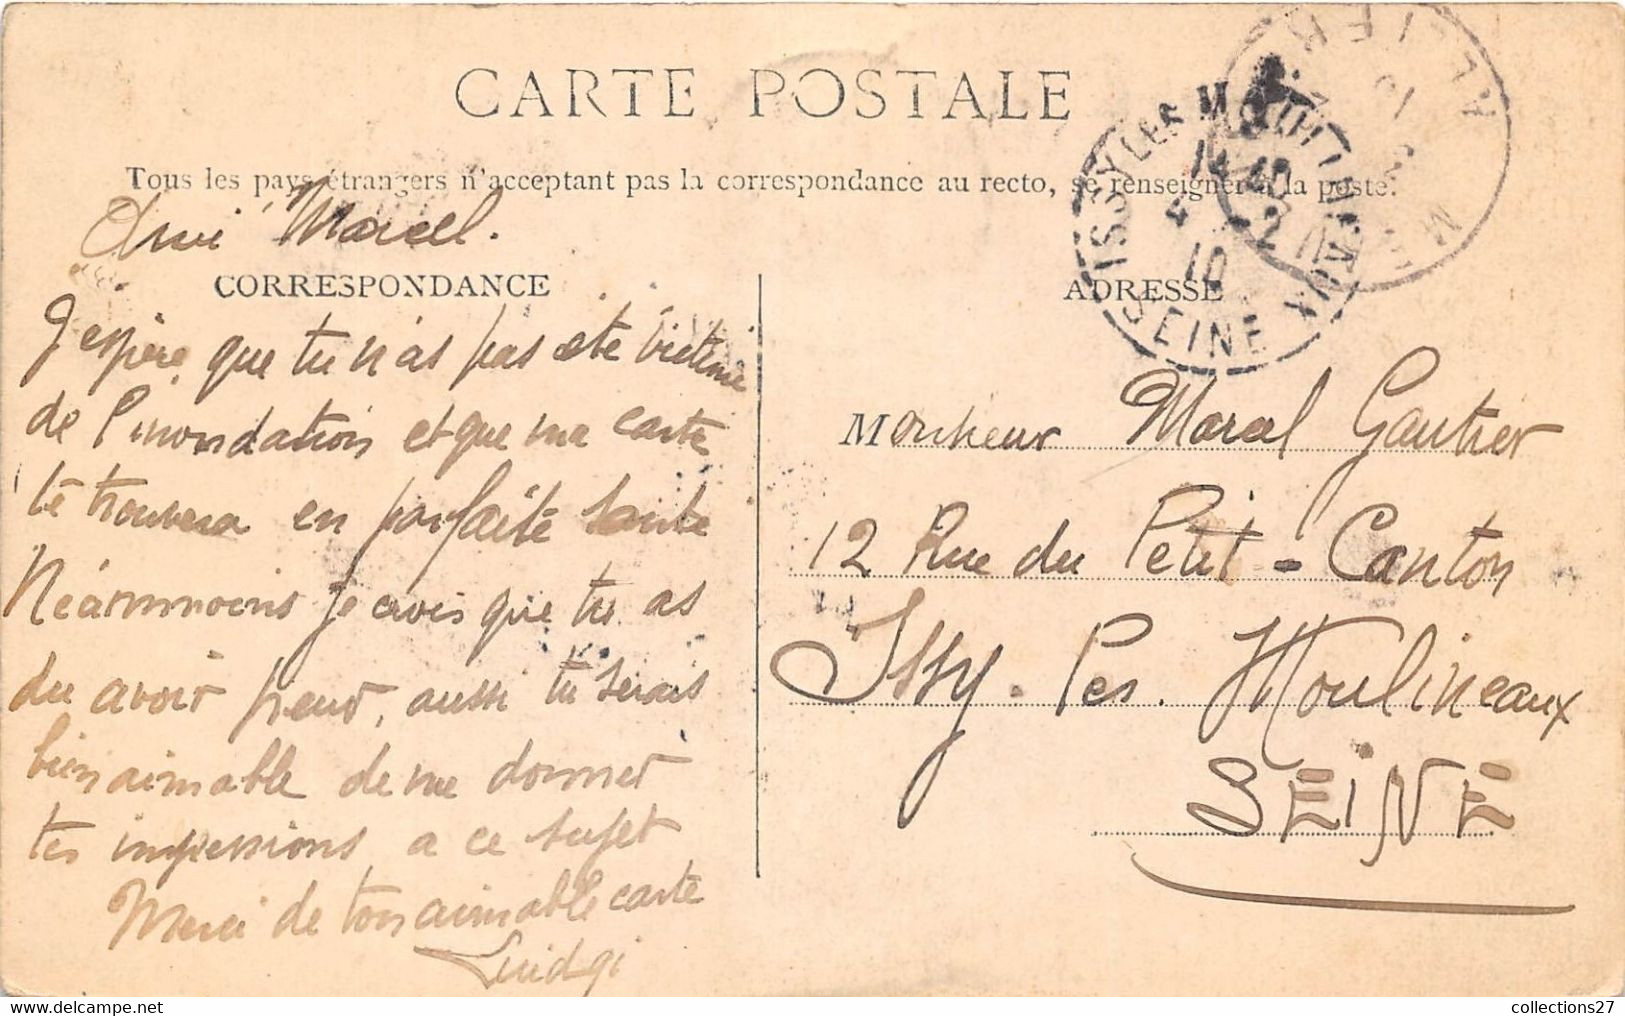 CARTE POSTALE
Tous les pays étrangers n'acceptant pas la correspondance au recto, se renseigner à la poste.
Ami Marcel.
CORRESPONDANCE
J'espère, que tu n'as pas été victime
de l'inondation et que ma carte
te trouvera en parfaite santé
Néanmmoins je crois que tu as
du avoir peur, aussi tu serais
bien aimable de me donner
tes impressions a ce sujet
Merci de ton aimable carte
Luidgi
ADRESSE
Monsieur Marcel Gautier
12 Rue du Petit - Canton
Issy. les. Moulineaux
SEINE
ISSY LES MOULINEAUX
SEINE
10
ALGER
collections27